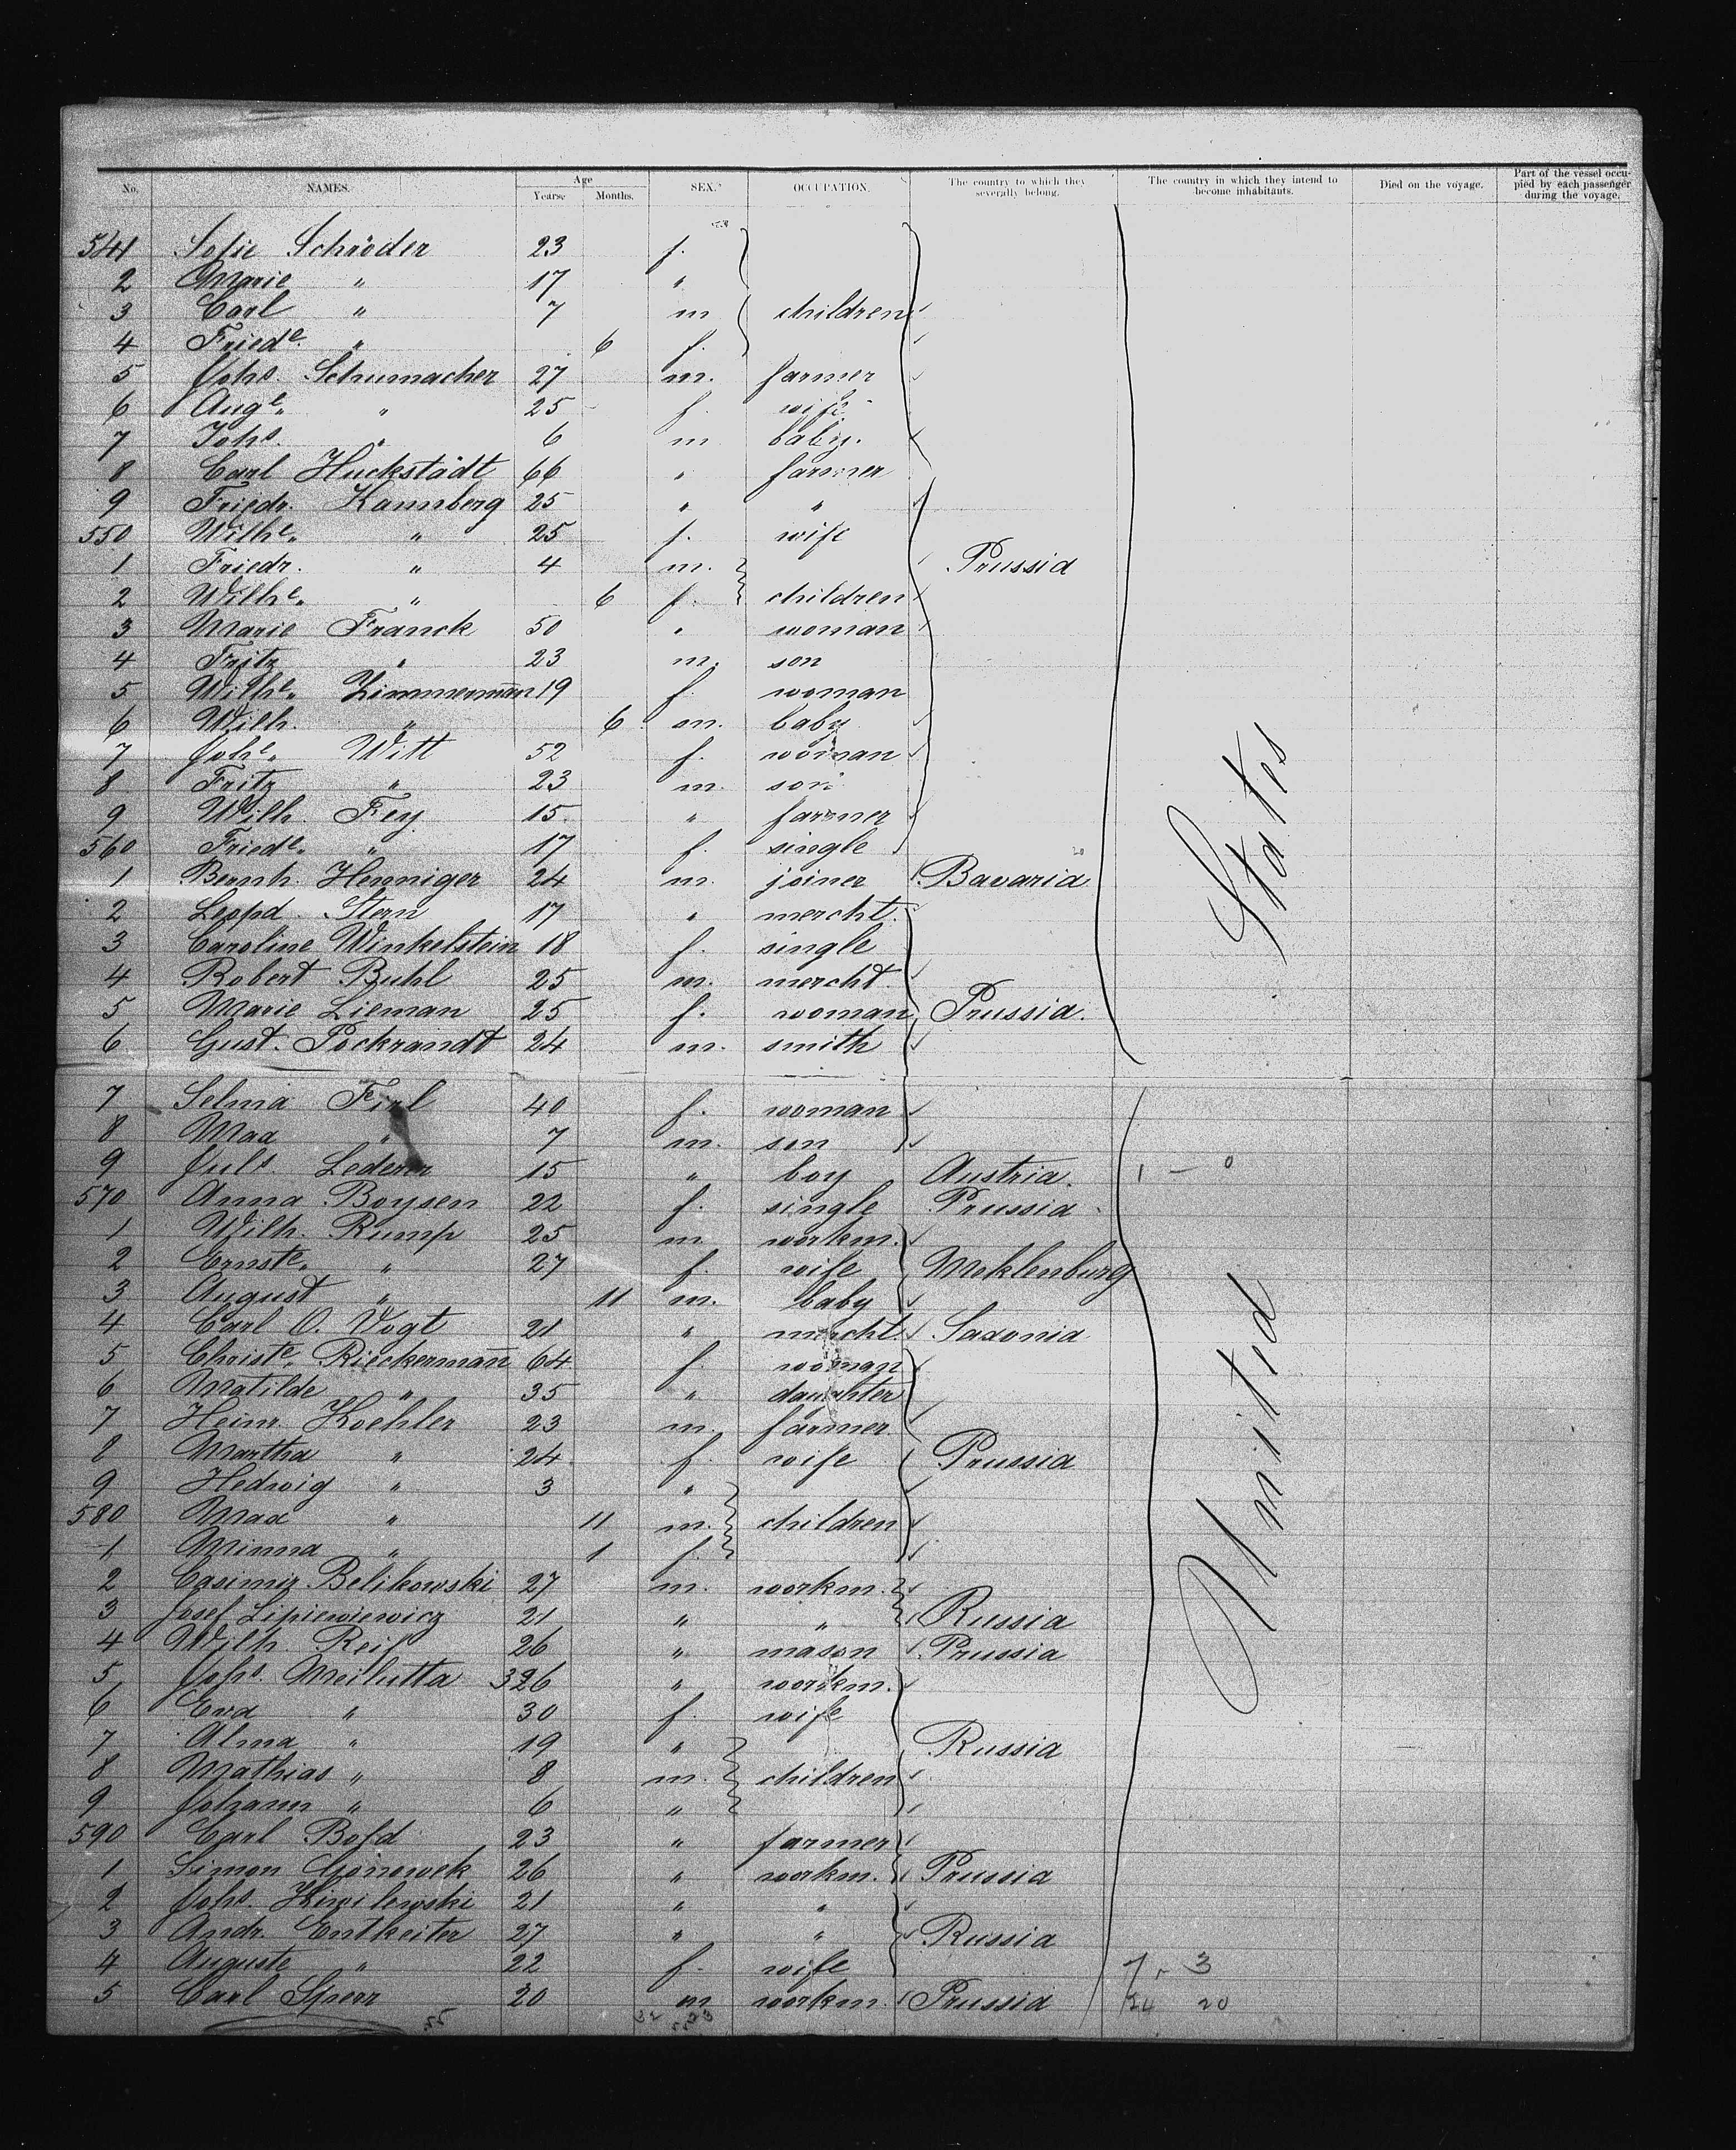 No. NAMES. Age Years Months. SEX. OCCUPATION. The country to which they severally belong. The country in which they intend to become inhabitants. Died on the voyage. Part of the vessel occupied by each passenger during the voyage.
541 Sofie Schröder 23 f.
2 Marie " 17 "
3 Carl " 7 m children
4 Friede. " 6 f.
5 Johs. Schumacher 27 m. farmer
6 Auge. " 25 f. wife
7 Johs. " 6 m baby.
8 Carl Huckstädt 66 " farmer
9 Friedr. Kannberg 25 " "
550 Wilhe. " 25 f. wife
1 Friedr. " 4 m. Prussia
2 Wilhe. " 6 f. children
3 Marie Franck 50 " woman
4 Fritz " 23 m. son
5 Wilhe. Zimmermann 19 f. woman
6 Wilh. " 6 m. baby
7 Johe. Witt 52 f. woman
8 Fritz " 23 m. son
9 Wilh. Fey 15 " farmer
560 Friede. " 17 f. single
1 Bernh. Henniger 24 m. joiner Bavaria
2 Leopd. Stern 17 " mercht.
3 Caroline Winkelstein 18 f. single
4 Robert Buhl 25 m. mercht.
5 Marie Lieman 25 f. woman Prussia.
6 Gust. Pockrandt 24 m. smith
7 Selma Firl 40 f. woman
8 Max " 7 m. son
9 Juls. Lederer 15 " boy Austria. 1 - 0
570 Anna Boysen 22 f. single Prussia
1 Wilh. Rump 25 m workm.
2 Ernste. " 27 f. wife Meklenburg
3 August " 11 m. baby
4 Carl O. Vogt 21 " mercht. Saxonia
5 Christe. Rieckermann 64 f. woman
6 Matilde " 35 " daughter
7 Heinr. Koehler 23 m. farmer
8 Martha " 24 f. wife Prussia
9 Hedwig " 3 "
580 Max " 11 m. children
1 Minna " 1 f.
2 Casimir Belikowski 27 m. workm.
3 Josef Lipiewiewicz 21 " " Russia
4 Wilh. Reif 26 " mason Prussia
5 Johs. Meilutta 26 " workm.
6 Eva " 30 f. wife
7 Alma " 19 " Russia
8 Mathias " 8 m. children
9 Johann " 6 "
590 Carl Bold 23 " farmer
1 Simon Gonowek 26 " workm. Prussia
2 Johs. 21 " "
3 Andr. Entkeiter 27 " " Russia
4 Auguste " 22 f. wife 7 - 3
5 Carl Sperr 20 m workm. Prussia 24 20
United States